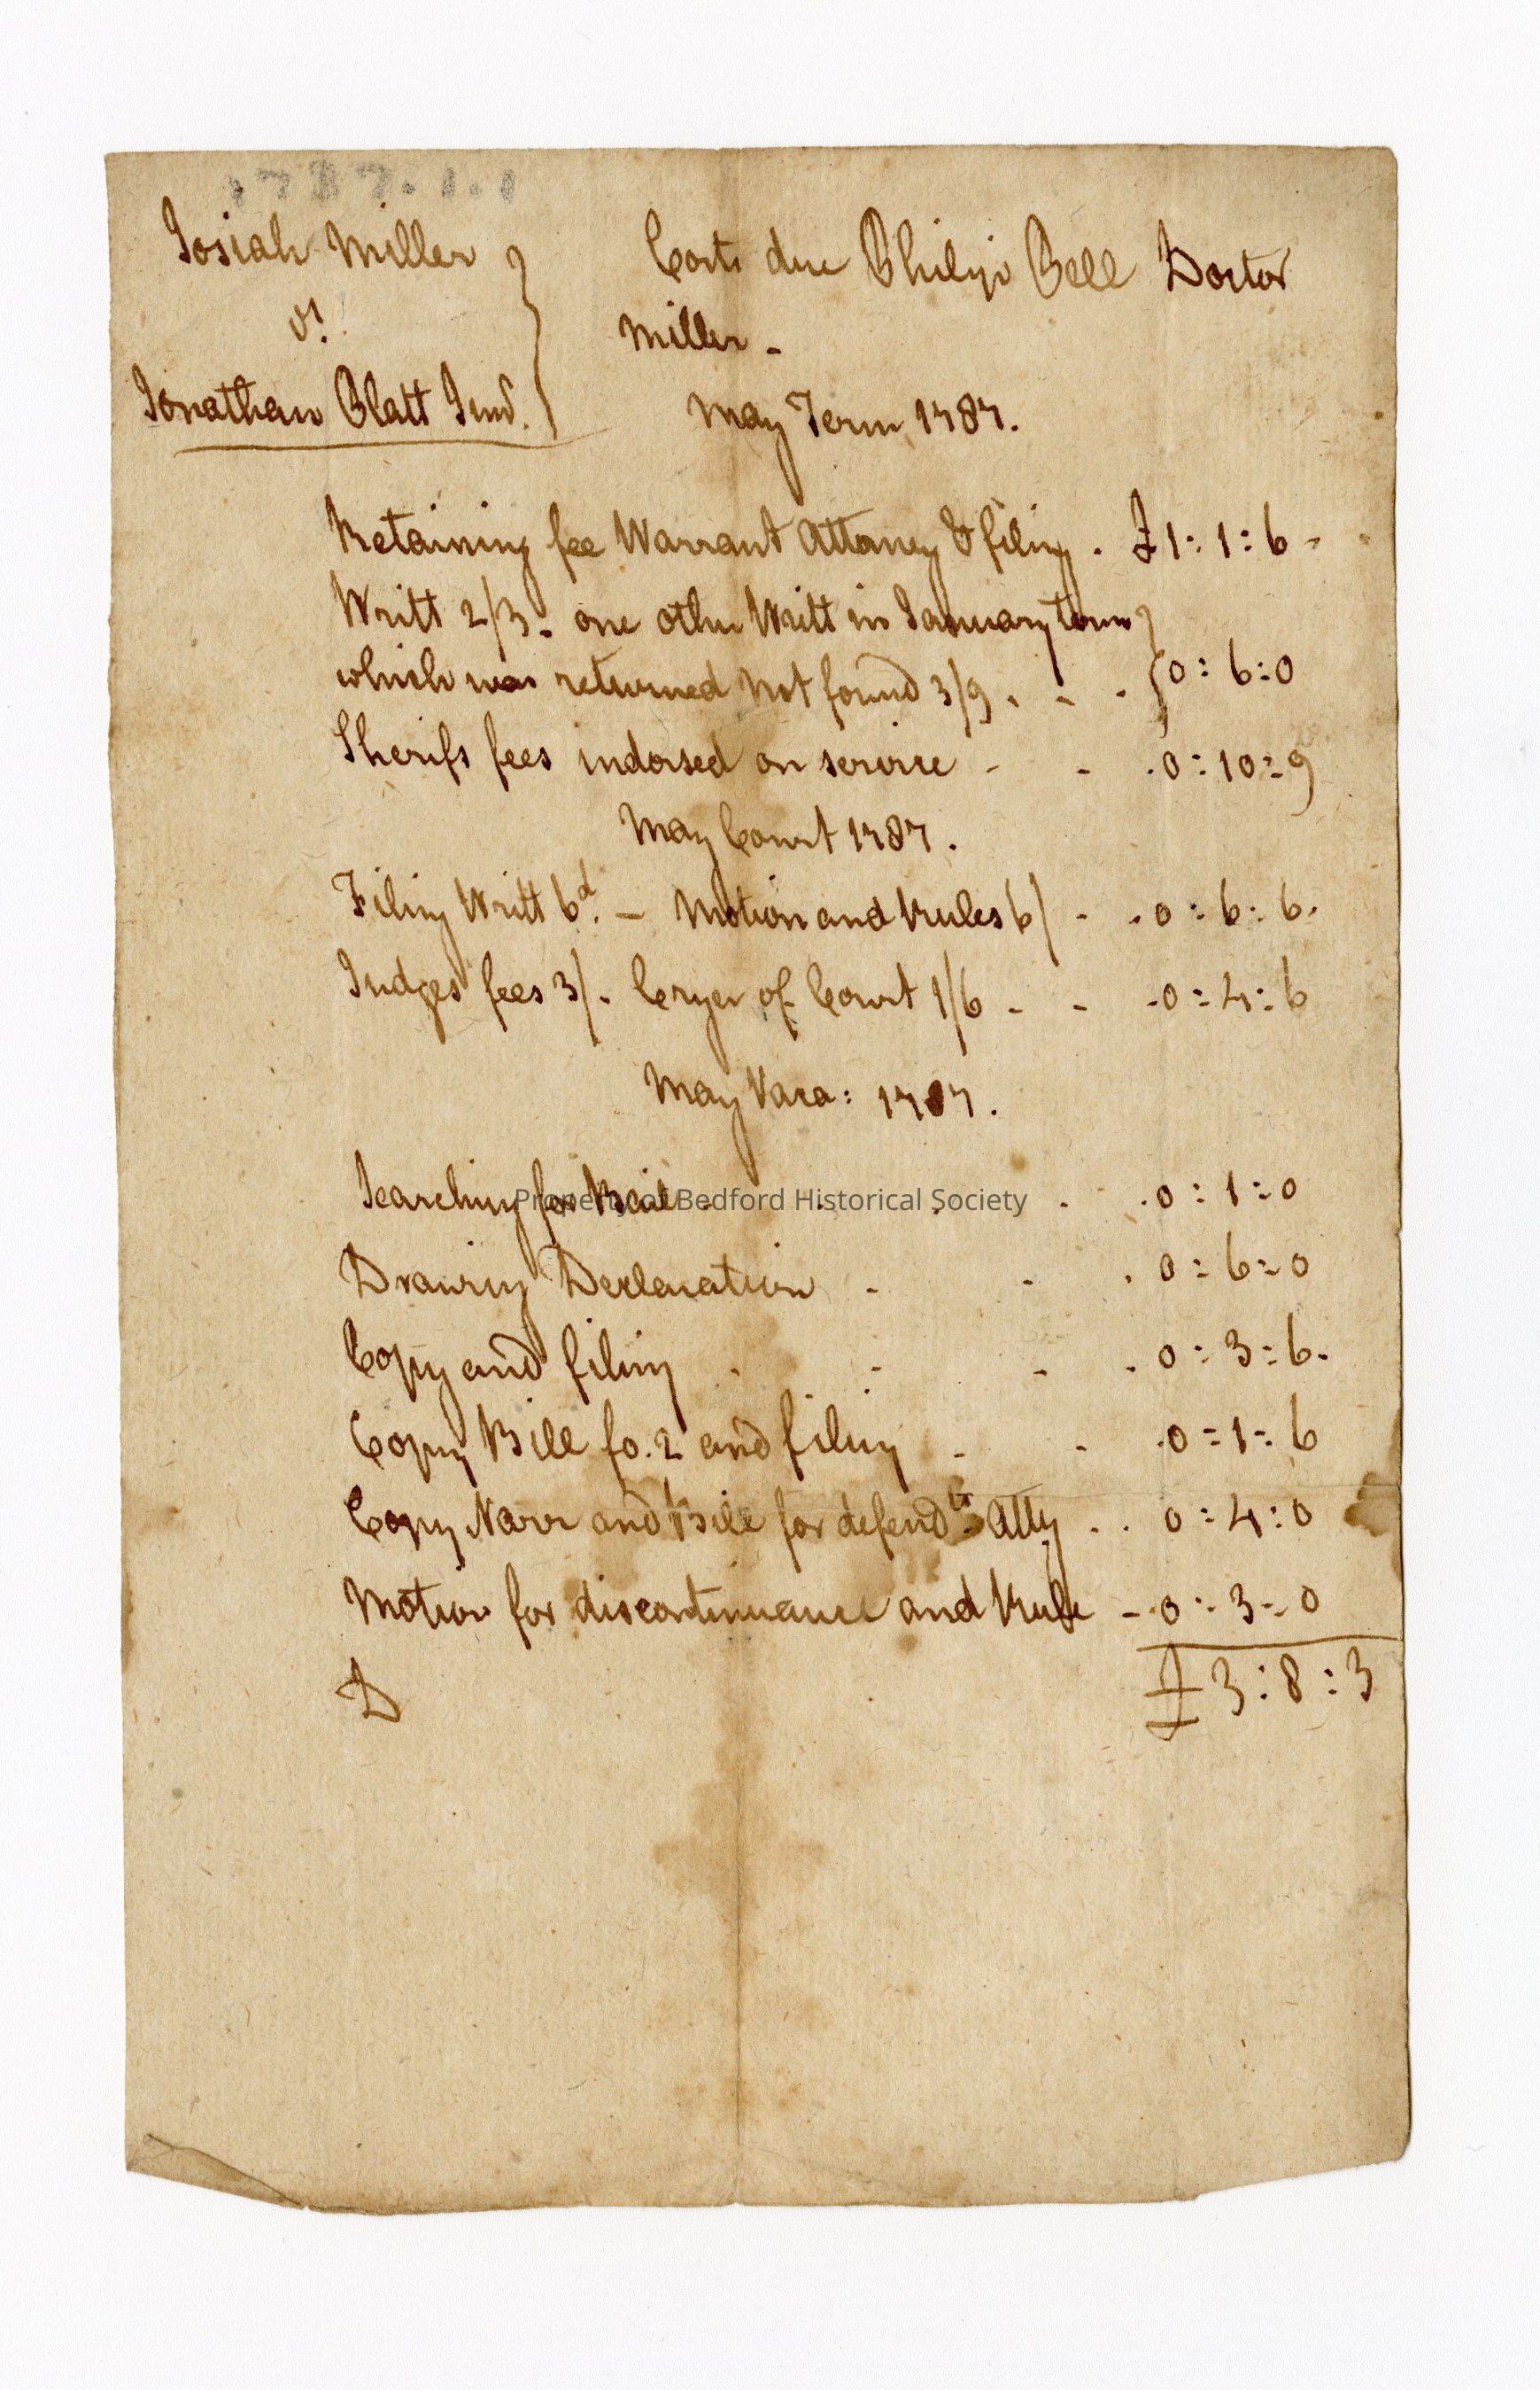 1787.1.1
Josiah Miller
vs.
Jonathan Platt Junr.
Costs due Philip Pell Doctor
Miller -
May Term 1787.
Retaining fee Warrant Attorney & filing . £1:1:6 -
Writt 2/3. one other Writt in January term
which was returned not found 3/9 . - . 0:6:0
Sherifs fees indorsed on service - - . 0:10:9
May Court 1787.
Filing Writt 6d. - Motion and Rules 6/ - . 0:6:6.
Judges fees 3/. Cryer of Court 1/6 - - . 0:4:6
May Vaca: 1787.
Searching for Bail . . . . . 0:1:0
Property of Bedford Historical Society
Drawing Declaration - - . 0:6:0
Copy and filing . - - . 0:3:6.
Copy Bill fo. 2 and filing - - . 0:1:6
Copy Narr and Bill for defendts. Atty . . 0:4:0
Motion for discontinuance and Rule - . 0:3:0
£3:8:3